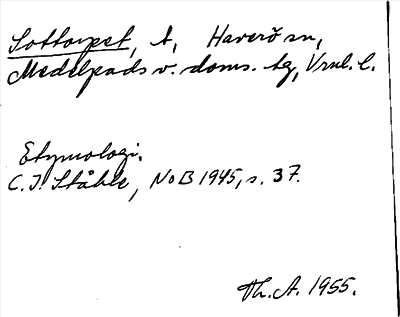 Sottorpet, t, Haverö sn,
Medelpads v. doms. tg, Vrnl. l.
Etymologi.
C. I. Ståhle, NoB 1945, s. 37.
Th. A. 1955.